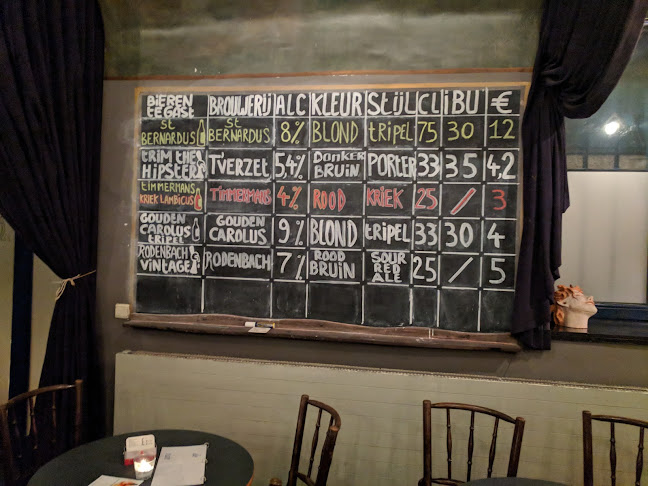 BIEREN TE GAST BROUWERIJ ALC KLEUR STIJL CL IBU €
ST BERNARDUS ST BERNARDUS 8% BLOND TRIPEL 75 30 12
TRIM THE HIPSTER TVERZET 5,4% DONKER BRUIN PORTER 33 35 4,2
TIMMERMANS KRIEK LAMBICUS TIMMERMANS 4% ROOD KRIEK 25 / 3
GOUDEN CAROLUS TRIPEL GOUDEN CAROLUS 9% BLOND TRIPEL 33 30 4
RODENBACH VINTAGE RODENBACH 7% ROOD BRUIN SOUR RED ALE 25 / 5